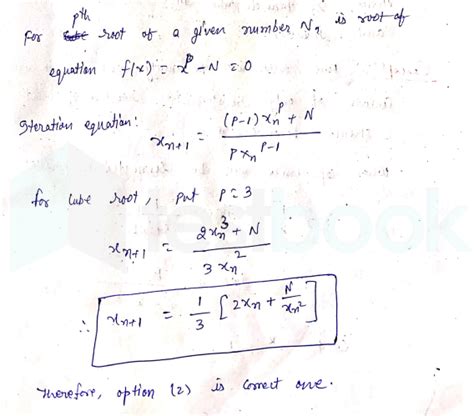 pth
For root of a given number N, is root of
equation f(x) = x^p - N = 0
Iteration equation:
x_{n+1} = \frac{(P-1) x_n^p + N}{P x_n^{P-1}}
for Cube root, put P = 3
x_{n+1} = \frac{2x_n^3 + N}{3 x_n^2}
∴ x_{n+1} = \frac{1}{3} [2x_n + \frac{N}{x_n^2}]
Therefore, option (2) is correct one.
testbook